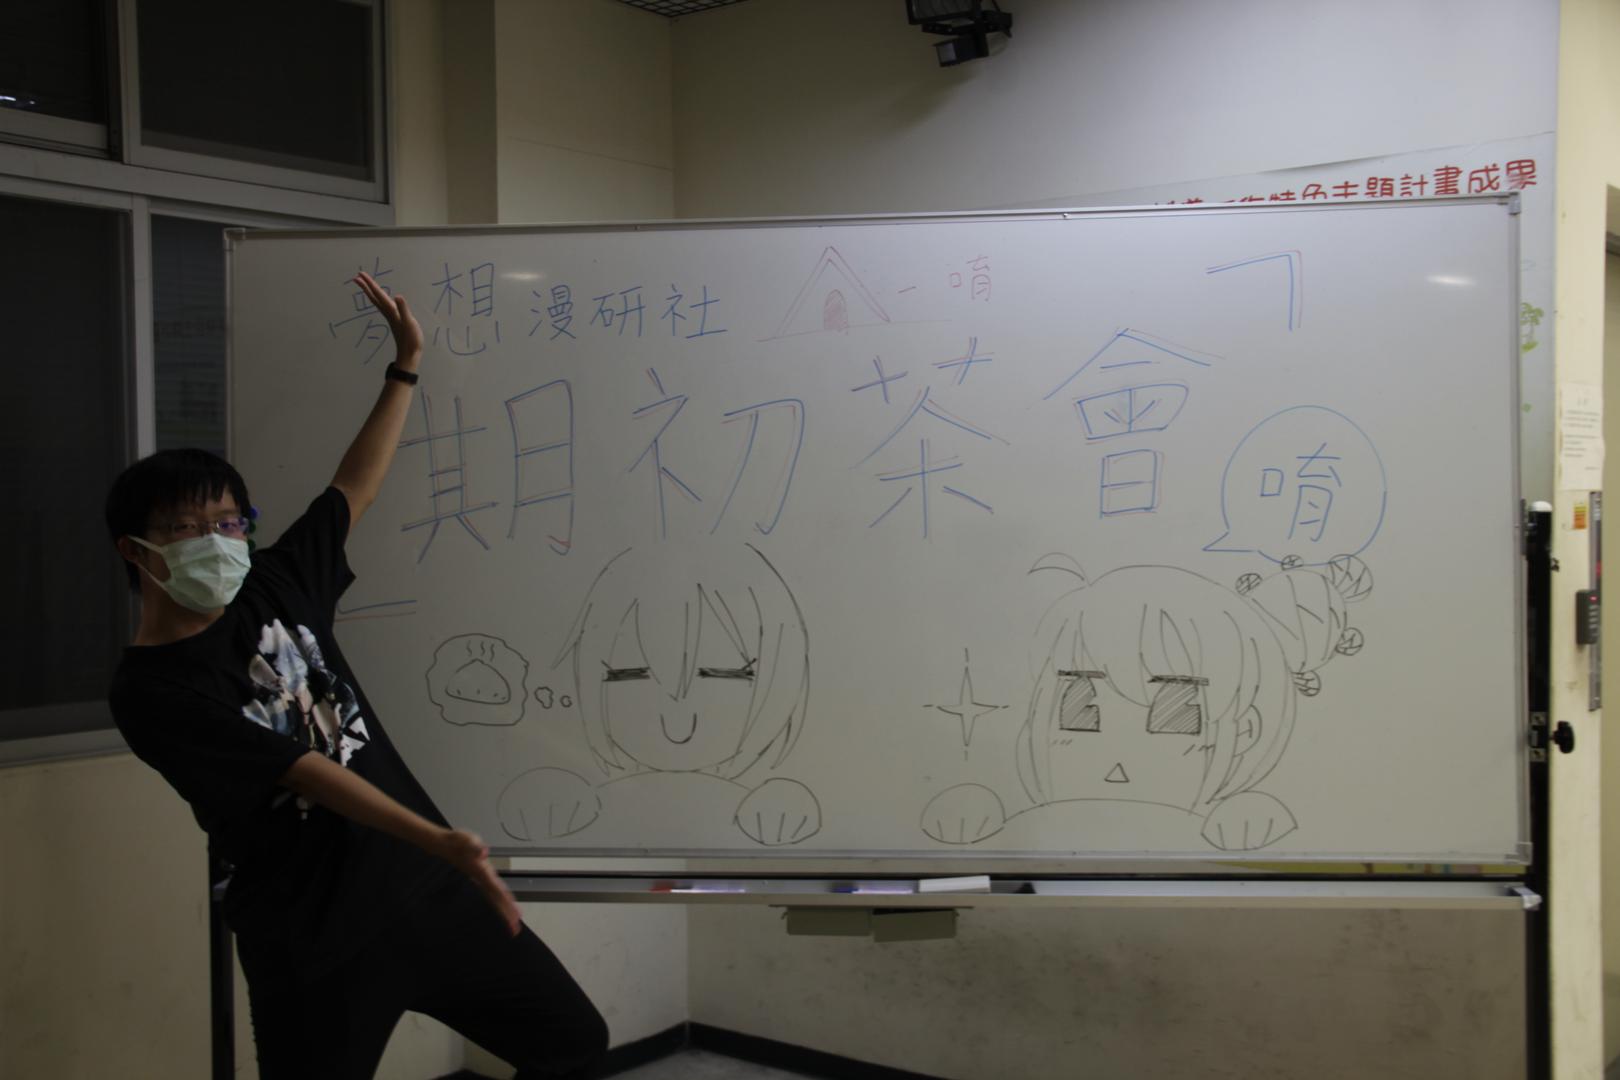 特色主題計畫成果
夢想漫研社 一唷
期初茶會
唷